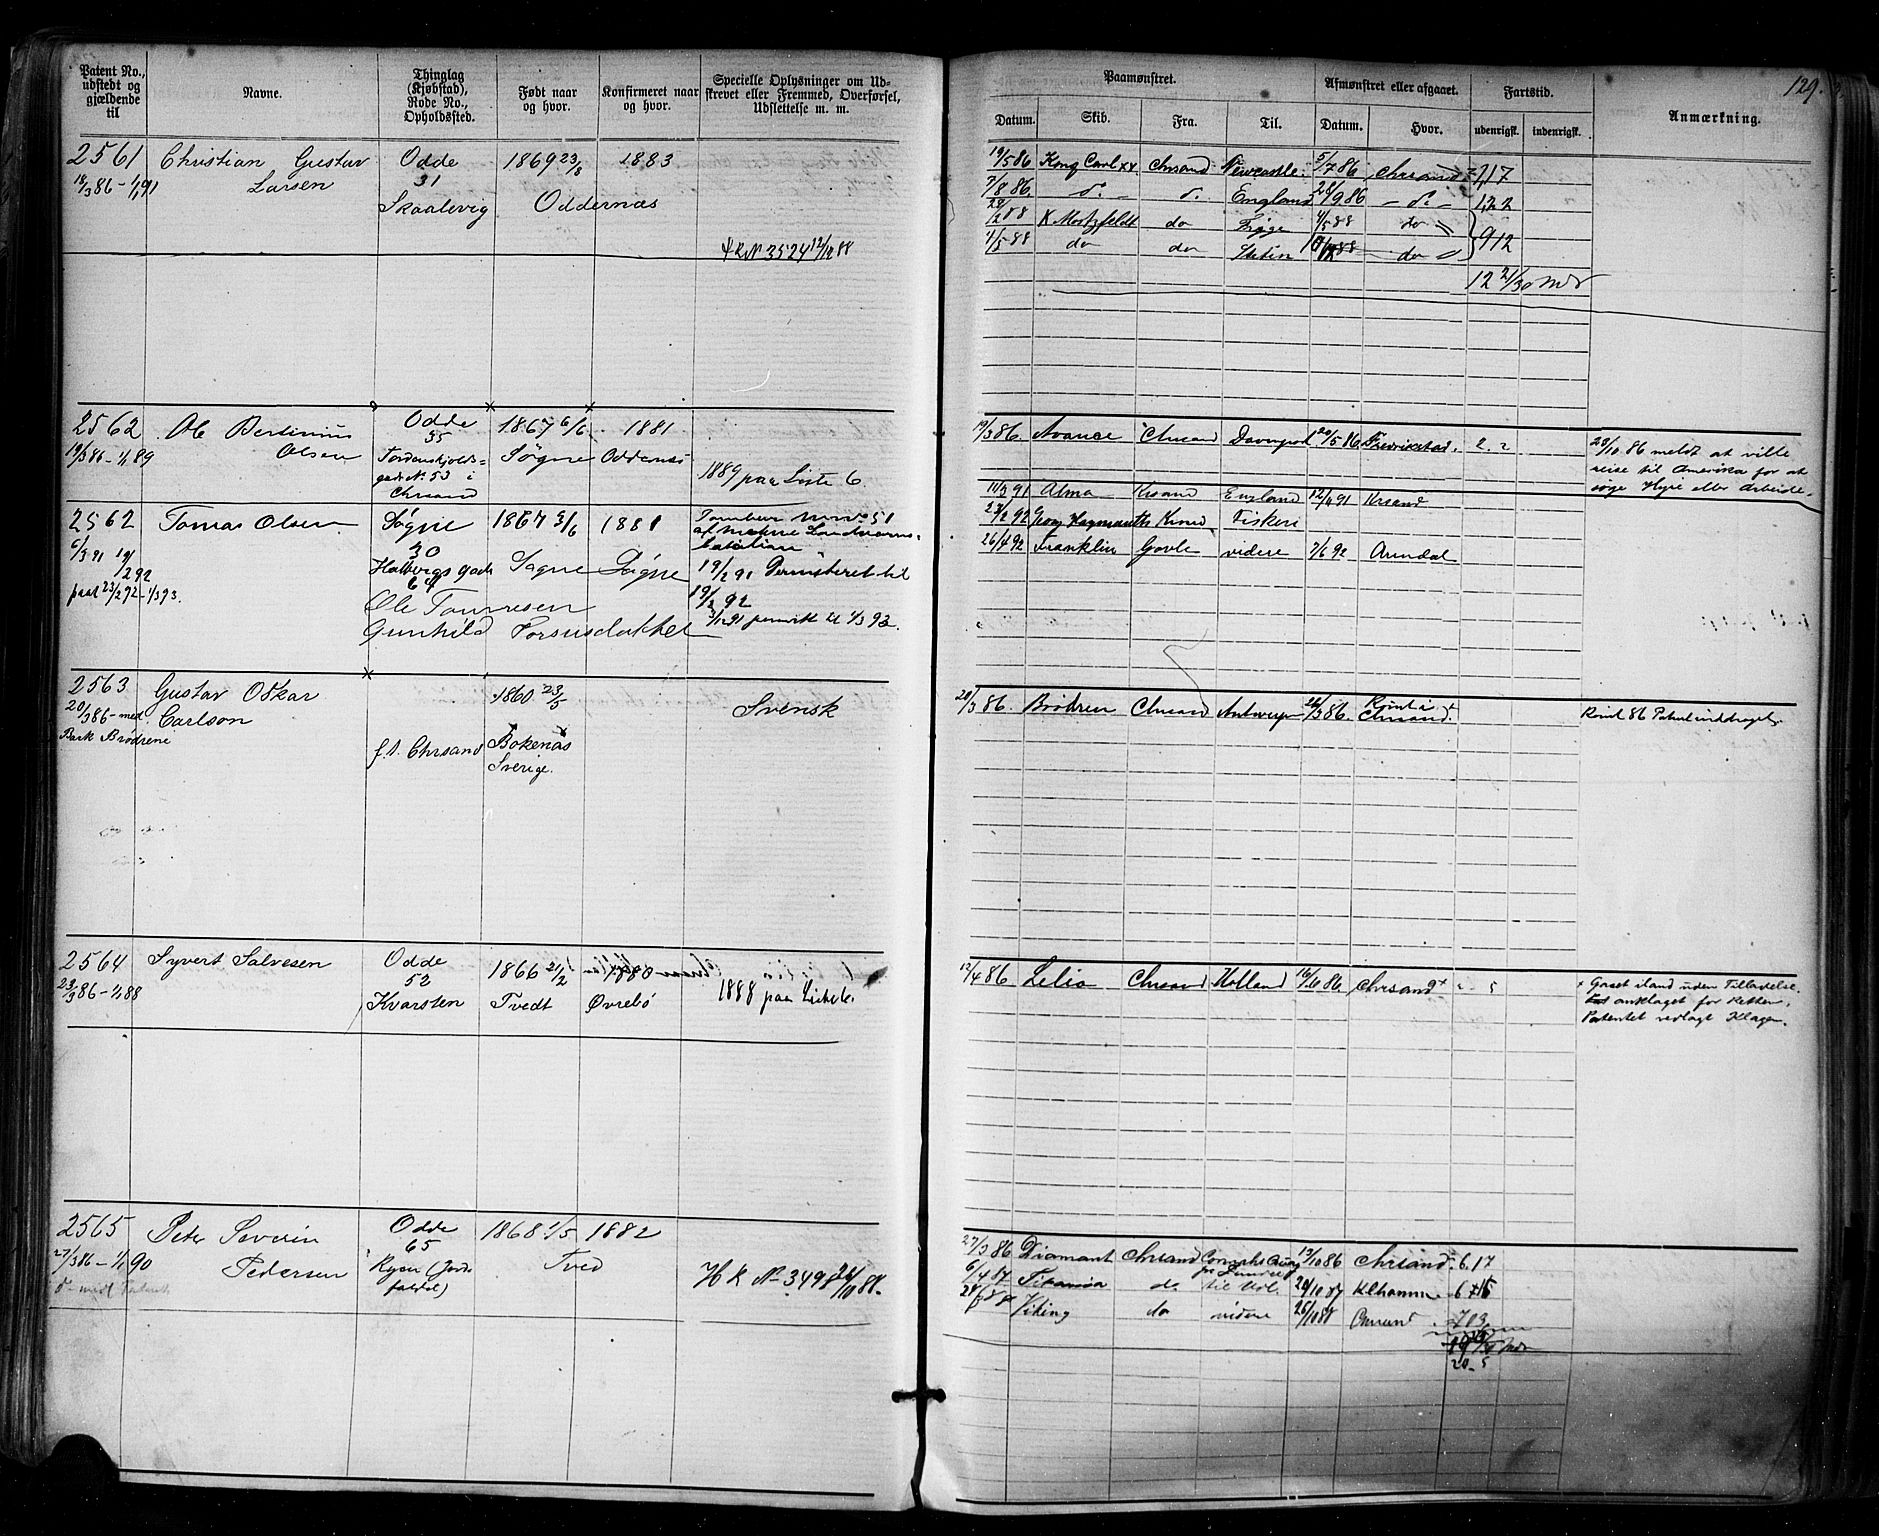 129.
Patent No., udstedt og gjældende til
Navne.
Thinglag (Kjøbstad), Rode No., Opholdssted.
Født naar og hvor.
Konfirmeret naar og hvor.
Specielle Oplysninger om Udskrevet eller Fremmed, Overførsel, Udslettelse m. m.
Paamønstret.
Afmønstret eller afgaaet.
Fartstid.
Anmærkning.
Datum. Skib. Fra. Til. Datum. Hvor. udenrigsk. indenrigsk.
2561 Christian Gustav Odde 1869 23/8 1883
18/3 86 - 1/1 91 Larsen 31
Skaalevig Oddernæs
3524 12/12 88
19/5 86 Kong Carl XV Chrsand Newcastle 5/7 86 Chrsand 1,17
7/8 86. do do England 28/9 86 do 1,22
28/2 88 K Motzfeldt do 4/5 88 do
4/5 88 do do Stetin do 912
12 21/30 Mdr
2562 Ole Bertinius Odde 1867 6/6 1881
19/3 86 - 1/1 89 Olsen 35 Søgne Oddernæs
Tordenskjolds=
gade No. 53 i
Chrsand
1889 paa Liste 6.
19/3 86. Avance Chrsand 20/5 86 Fredrikstad. 2. 2
28/10 86 meldt at ville
reise til Amerika for at
søge Hyre eller Arbeide.
2562 Tomas Olsen Søgne 1867 1881
6/3 91 19/2 92 30 Søgne Søgne
paat 23/2 92 - 1/3 93. Holbergs gade
64
Ole Tønnesen
Gunhild
19/2 91 Permitteret til
19/2 92
permitt til 1/3 93.
11/3 91 Alma Krsand England 12/4 91 Krsand
Fiskeri
26/4 92 Franklin Gøvle videre 7/6 92 Arendal
2563 Gustav Oskar 1860 23/5
20/3 86 - med Carlson
Bark Brødrene f. t. Chrsand Bokenäs
Sverige.
Svensk
20/3 86. Brødrene Chrsand Antwerpen 26/3 86. Rømt i
Chrsand.
Rømt 86 Patent inddraget
2564 Syvert Salvesen Odde 1866 21/2 1880
23/3 86 - 1/1 88 52
Kvarsten Tvedt Øvrebø
1888 paa Liste 6.
12/4 86. Lelia Chrsand Holland 16/6 86 Chrsand - 5
+ Gaaet iland uden Tilladelse.
anklaget for Retten,
Patentet vedlagt Klagen.
2565 Peter Severin Odde 1868 1/5 1882
27/3 86 - 1/1 90 Pedersen 65 Tved
d - med Patent
H R No 3498 26/10 88.
27/3 86 Diamant Chrsand 19/10 86 Chrsand 6.17
6/4 87 Titania do til 29/10 87 Klhavn 6
Viking do videre 26/10 88 Chrsand
20 - 5